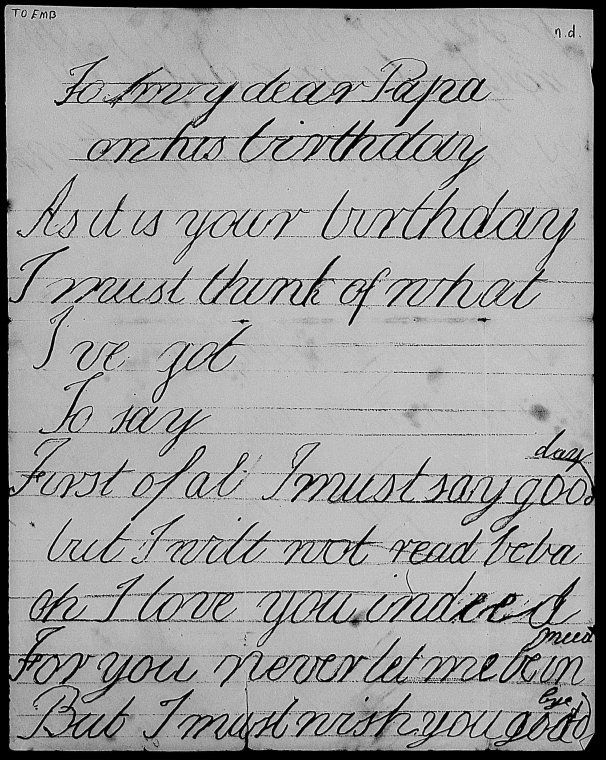 TO EMB
n.d.
To my dear Papa
on his birthday
As it is your birthday
I must think of what
I've got
To say
day
First of al I must say good
but I will not read
oh I love you indeed
must
For you never let me be in
bye
But I must wish you good